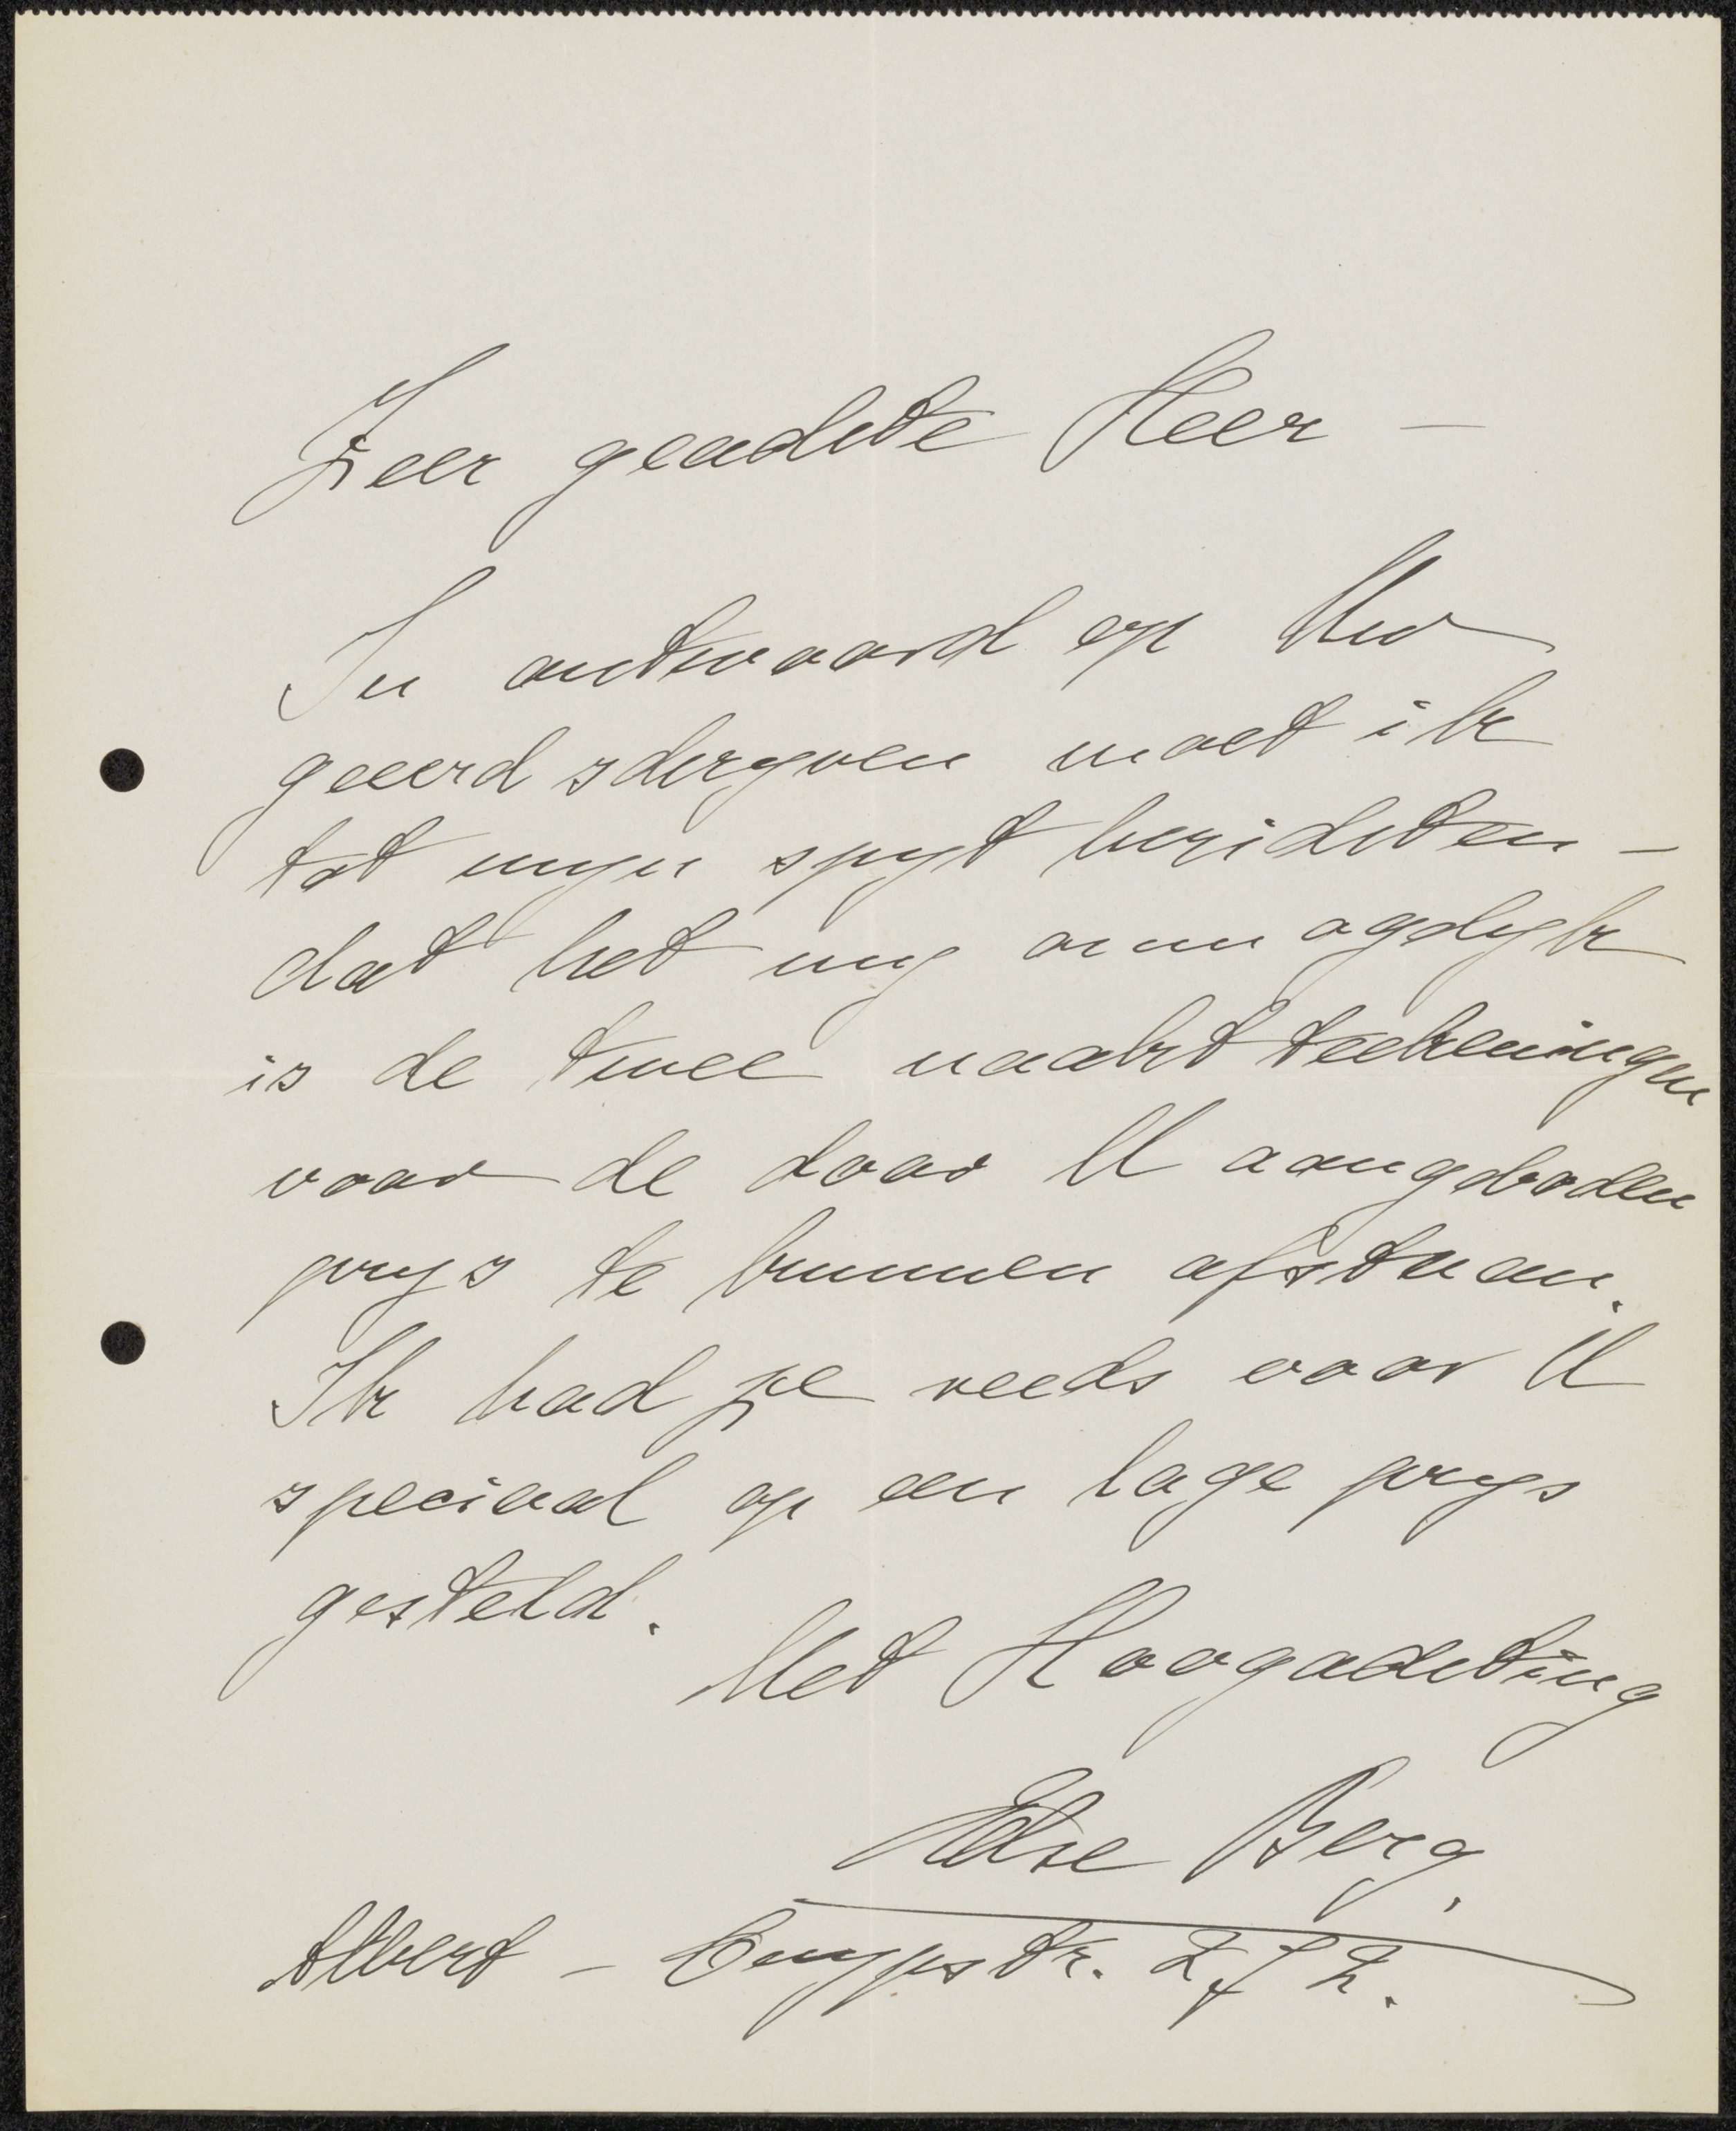 Zeer geachte Heer —
In antwoord op Uw
geeerd schryven moet ik
tot myn spyt berichten —
dat het my onmogelyk
is de twee naakt teekeningen
voor de door U aangeboden
prys te kunnen afstaan.
Ik had ze reeds voor U
speciaal op een lage prys
gesteld.
Met Hoogachting
Else Berg.
Albert – Cuypstr. 272.